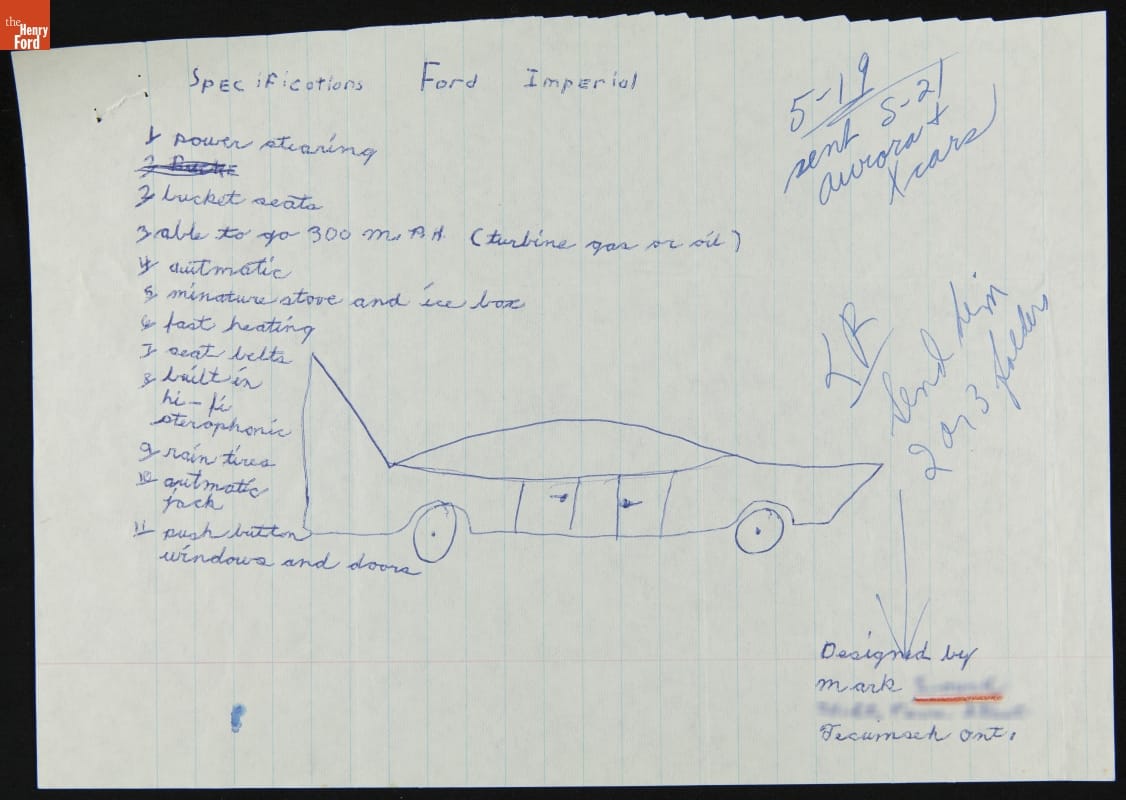 the
Henry
Ford
Specifications Ford Imperial
5-19
sent 5-21
aurora +
X cars
1 power stearing
2 Bucke
2 bucket seats
3 able to go 300 m.P.H. (turbine gas or oil)
4 autmatic
5 minature stove and ice box
6 fast heating
7 seat belts
8 built in
hi-fi
sterophonic
9 rain tires
10 autmatic
jack
11 push button
windows and doors
Send him
2 or 3 folders
Designed by
Mark
Tecumseh Ont.